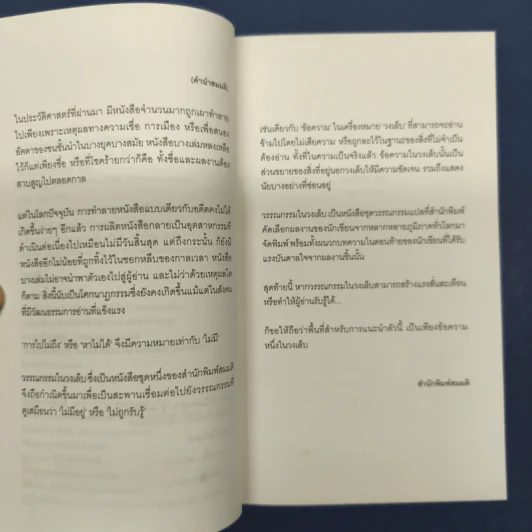 (คำนำสมมติ)
ในประวัติศาสตร์ที่ผ่านมา มีหนังสือจำนวนมากถูกเผาทำลาย
ไปเพียงเพราะเหตุผลทางความเชื่อ การเมือง หรือเพื่อสนอง
อัตตาของชนชั้นนำในบางยุคบางสมัย หนังสือบางเล่มหลงเหลือ
ไว้ก็แต่เพียงชื่อ หรือที่โชคร้ายกว่าก็คือ ทั้งชื่อและผลงานต้อง
สาบสูญไปตลอดกาล
แต่ในโลกปัจจุบัน การทำลายหนังสือแบบเดียวกับอดีตคงไม่ได้
เกิดขึ้นง่ายๆ อีกแล้ว การผลิตหนังสือกลายเป็นอุตสาหกรรมที่
ดำเนินต่อเนื่องไปเหมือนไม่มีวันสิ้นสุด แต่ถึงกระนั้น ก็ยังมี
หนังสืออีกไม่น้อยที่ถูกทิ้งไว้ในซอกหลืบของกาลเวลา หนังสือ
บางเล่มไม่อาจนำพาตัวเองไปสู่ผู้อ่าน และไม่ว่าด้วยเหตุผลใด
ก็ตาม สิ่งนี้นับเป็นโศกนาฏกรรมซึ่งยังคงเกิดขึ้นแม้แต่ในสังคม
ที่มีวัฒนธรรมการอ่านที่แข็งแรง
'การไปไม่ถึง' หรือ 'หาไม่ได้' จึงมีความหมายเท่ากับ 'ไม่มี'
วรรณกรรมในวงเล็บ ซึ่งเป็นหนังสือชุดหนึ่งของสำนักพิมพ์สมมติ
จึงถือกำเนิดขึ้นมาเพื่อเป็นสะพานเชื่อมต่อไปยังวรรณกรรมที่
ดูเสมือนว่า 'ไม่มีอยู่' หรือ 'ไม่ถูกรับรู้'
เช่นเดียวกับ 'ข้อความ' ในเครื่องหมาย 'วงเล็บ' ที่สามารถจะอ่าน
ข้ามไปโดยไม่เสียความ หรือถูกละไว้ในฐานะของสิ่งที่ไม่จำเป็น
ต้องอ่าน ทั้งที่ในความเป็นจริงแล้ว ข้อความในวงเล็บนั้นเป็น
ส่วนขยายของสิ่งที่อยู่นอกวงเล็บให้มีความชัดเจน รวมถึงแสดง
นัยบางอย่างที่ซ่อนอยู่
วรรณกรรมในวงเล็บ เป็นหนังสือชุดวรรณกรรมแปลที่สำนักพิมพ์
คัดเลือกผลงานของนักเขียนจากหลากหลายภูมิภาคทั่วโลกมา
จัดพิมพ์ พร้อมทั้งผนวกบทความในตอนท้ายของนักเขียนที่ได้รับ
แรงบันดาลใจจากผลงานชิ้นนั้น
สุดท้ายนี้ หากวรรณกรรมในวงเล็บสามารถสร้างแรงสั่นสะเทือน
หรือทำให้ผู้อ่านรับรู้ได้...
ก็ขอให้ถือว่าพื้นที่สำหรับการแนะนำตัวนี้ เป็นเพียงข้อความ
หนึ่งในวงเล็บ
สำนักพิมพ์สมมติ